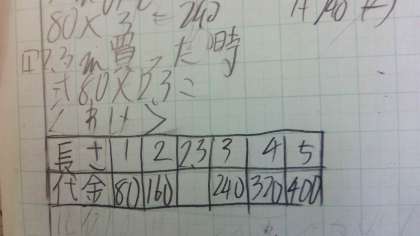 80×3=240
①2.3m買った時
式80×2.3=
長さ 1 2 2.3 3 4 5
代金 80 160 240 320 400